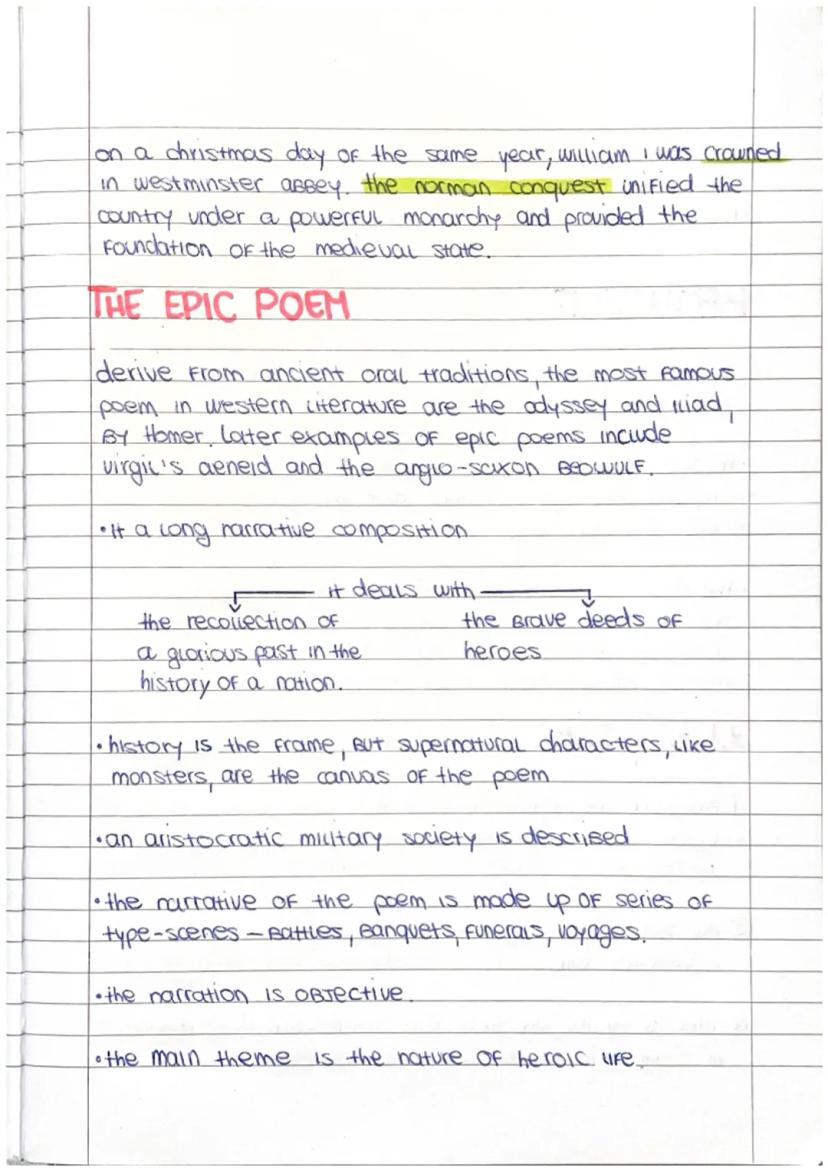 on a christmas day of the same year, william I was crowned
in westminster abbey. the norman conquest unified the
country under a powerful monarchy and provided the
foundation of the medieval state.
THE EPIC POEM
derive from ancient oral traditions, the most famous
poem in western literature are the odyssey and iliad,
by Homer. Later examples of epic poems include
virgil's aeneid and the anglo-saxon BEOWULF.
•It a long narrative composition
it deals with
the recollection of
a glorious past in the
history of a nation.
the brave deeds of
heroes
•history is the frame, but supernatural characters, like
monsters, are the canvas of the poem
•an aristocratic military society is described
•the narrative of the poem is made up of series of
type-scenes – battles, banquets, funerals, voyages.
•the narration is objective.
•the main theme is the nature of heroic life.